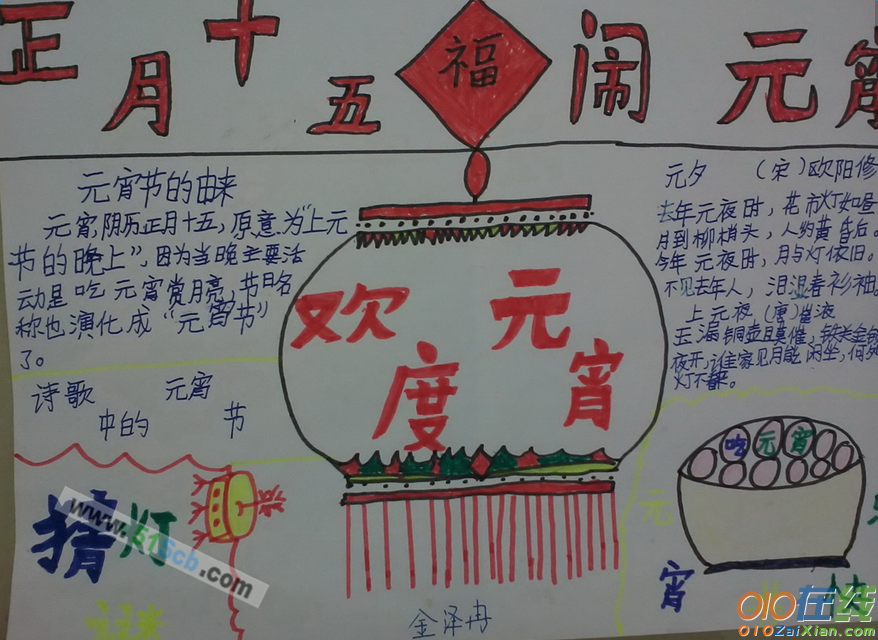 正月十五
福
闹元宵
元宵节的由来
元宵,阴历正月十五,原意为"上元
节的晚上",因为当晚主要活
动是吃元宵赏月亮,节日名
称也演化成"元宵节"
了。
诗歌 元宵
中的 节
猜灯
谜
欢元
度宵
元夕 (宋)欧阳修
去年元夜时,花市灯如昼
月到柳梢头,人约黄昏后。
今年元夜时,月与灯依旧。
不见去年人,泪湿春衫袖。
上元夜 (唐)崔液
玉漏铜壶且莫催,铁关金锁
夜开,谁家见月能闲坐,何处
灯不看来。
吃元宵
元
宵
快
金泽冉
www.51Scb.com
010在线
010ZaiXian.com